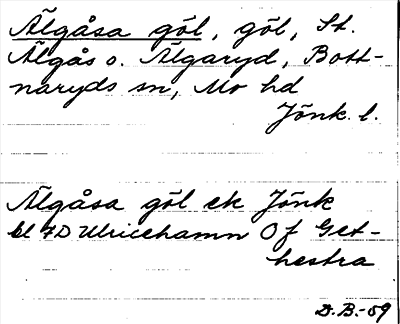 Älgåsa göl, göl, St.
Älgås o. Älgaryd, Bott-
naryds sn, Mo hd
Jönk. l.
Älgåsa göl ek Jönk
bl 7D Ulricehamn Of Get-
hestra
D.B.-59